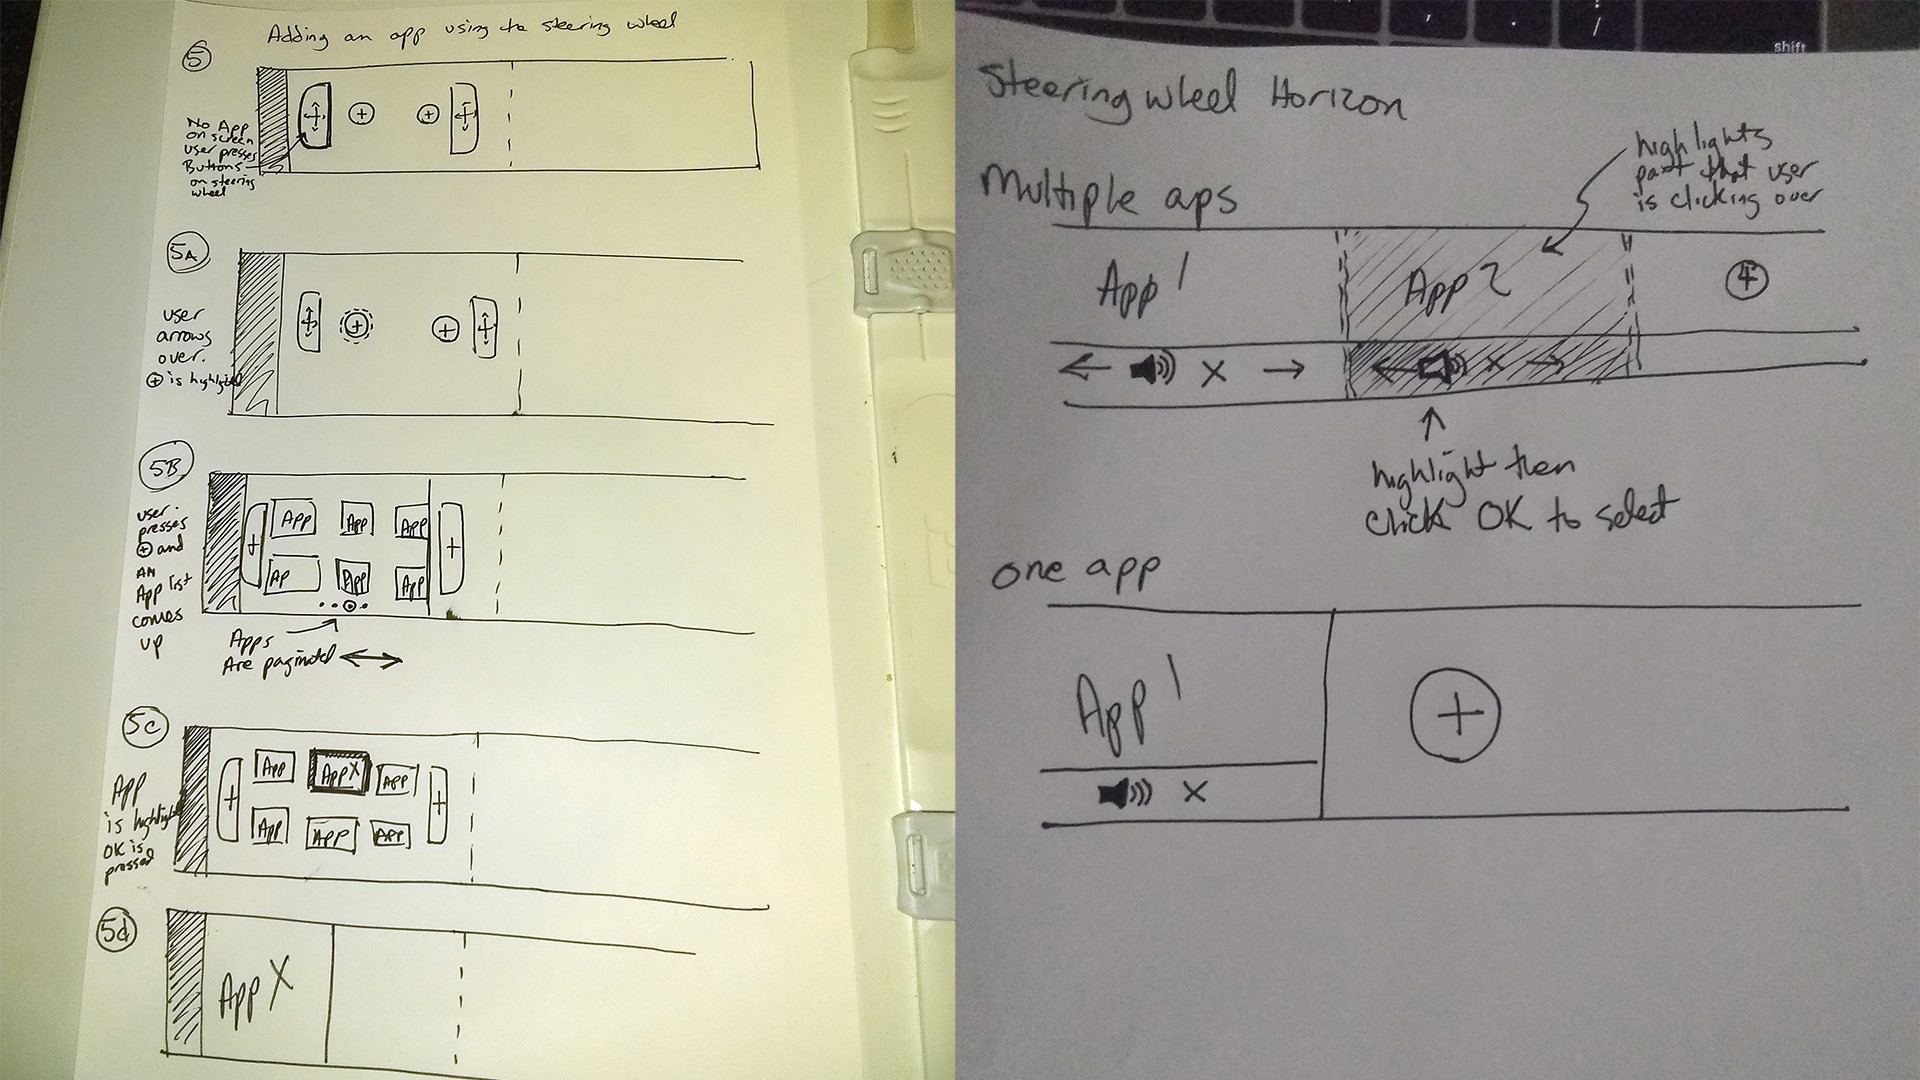 Adding an app using the steering wheel
5
No App
on screen
user presses
Buttons
on steering
wheel
5A
user
arrows
over.
+ is highlighted
5B
user
presses
+ and
an
App list
comes
up
App App App
Ap App App
Apps
Are paginated
5c
App
is highlighted
OK is
pressed
App App X App
App App App
5d
App X
shift
Steering wheel Horizon
highlights
part that user
is clicking over
Multiple aps
App 1 App 2 +
X X
highlight then
click OK to select
one app
App 1 +
X